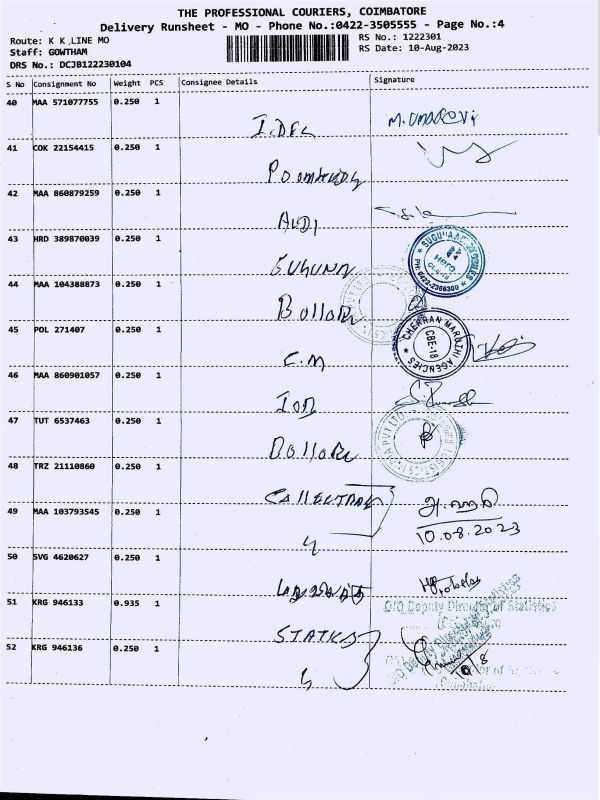 THE PROFESSIONAL COURIERS, COIMBATORE
Delivery Runsheet - MO - Phone No.:0422-3505555 - Page No.:4
Route: K K ,LINE MO RS No.: 1222301
Staff: GOWTHAM RS Date: 10-Aug-2023
DRS No.: DCJB122230104
S No Consignment No Weight PCS Consignee Details Signature
40 MAA 571077755 0.250 1
M. UMADEVi
41 COK 22154415 0.250 1
42 MAA 860879259 0.250 1
AUDI
43 HRD 389870039 0.250 1
PH: 0422-2366300
44 MAA 104388873 0.250 1
45 POL 271407 0.250 1
CHERRAN MARUTHI AGENCIES
CBE-18
C.M
46 MAA 860901057 0.250 1
47 TUT 6537463 0.250 1
48 TRZ 21110860 0.250 1
49 MAA 103793545 0.250 1
10.08.2023
50 SVG 4620627 0.250 1
51 KRG 946133 0.935 1
O/O Deputy Director of Statistics
52 KRG 946136 0.250 1